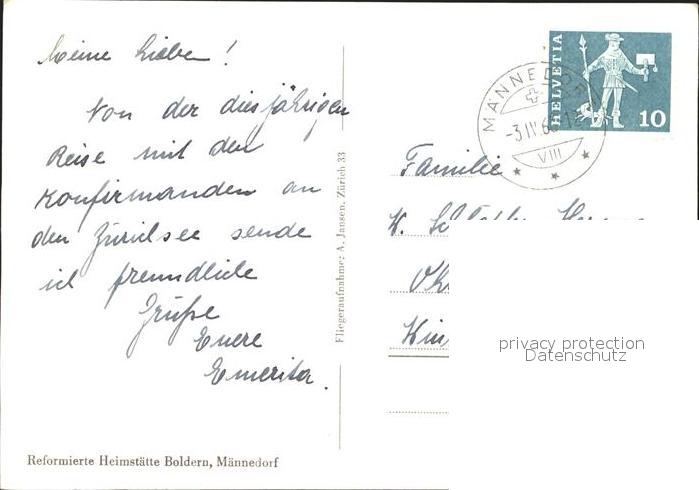 Meine Lieben!
Von der diesjährigen
Reise mit den
Konfirmanden an
den Zürichsee sende
ich freundliche
Grüsse
Euere
Emerita.
Reformierte Heimstätte Boldern, Männedorf
Fliegeraufnahme: A. Jansen, Zürich 33
HELVETIA
10
MÄNNEDORF
-3.IV.6
VIII
Familie
W.
privacy protection
Datenschutz